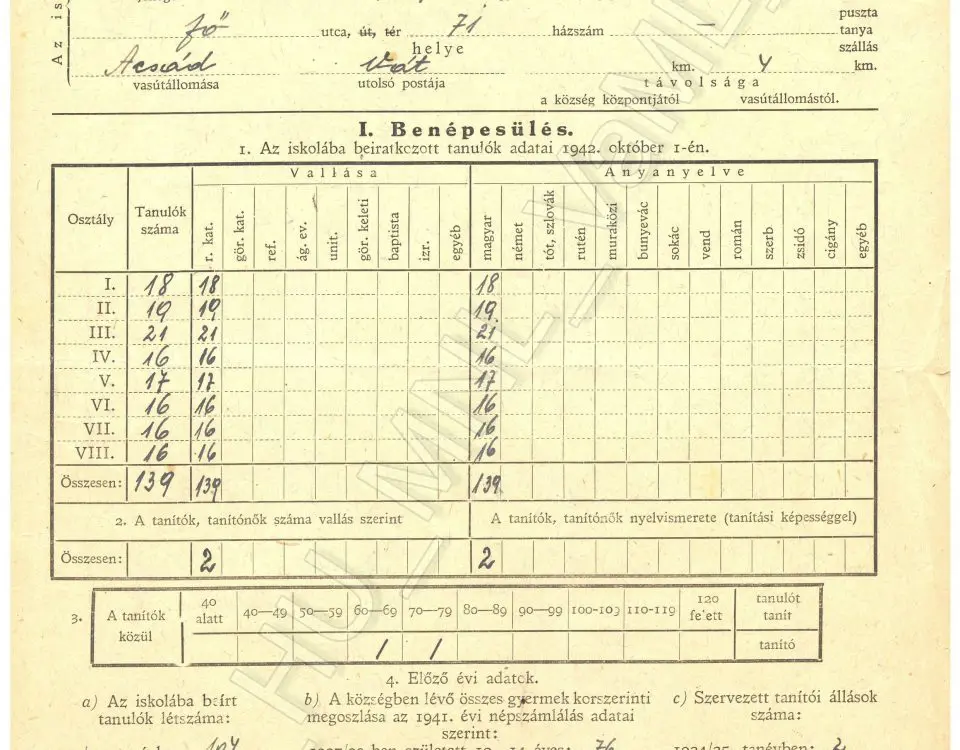 Az is
puszta
fő utca, út, tér 71 házszám — tanya
helye szállás
Acsád Vát km. 4 km.
vasútállomása utolsó postája távolsága
a község központjától vasútállomástól.
I. Benépesülés.
1. Az iskolába beiratkozott tanulók adatai 1942. október 1-én.
Osztály Tanulók száma Vallása Anyanyelve
r. kat. gör. kat. ref. ág. ev. unit. gör. keleti baptista izr. egyéb magyar német tót, szlovák rutén muraközi bunyevác sokác vend román szerb zsidó cigány egyéb
I. 18 18 18
II. 19 19 19
III. 21 21 21
IV. 16 16 16
V. 17 17 17
VI. 16 16 16
VII. 16 16 16
VIII. 16 16 16
Összesen: 139 139 139
2. A tanítók, tanítónők száma vallás szerint A tanítók, tanítónők nyelvismerete (tanítási képességgel)
Összesen: 2 2
3. A tanítók közül 40 alatt 40—49 50—59 60—69 70—79 80—89 90—99 100-109 110-119 120 felett tanulót tanít
1 1 tanító
4. Előző évi adatok.
a) Az iskolába beírt b) A községben lévő összes gyermek korszerinti c) Szervezett tanítói állások
tanulók létszáma: megoszlása az 1941. évi népszámlálás adatai száma:
szerint:
76 1934/35. tanévben: 2
HU_MNL_VaML